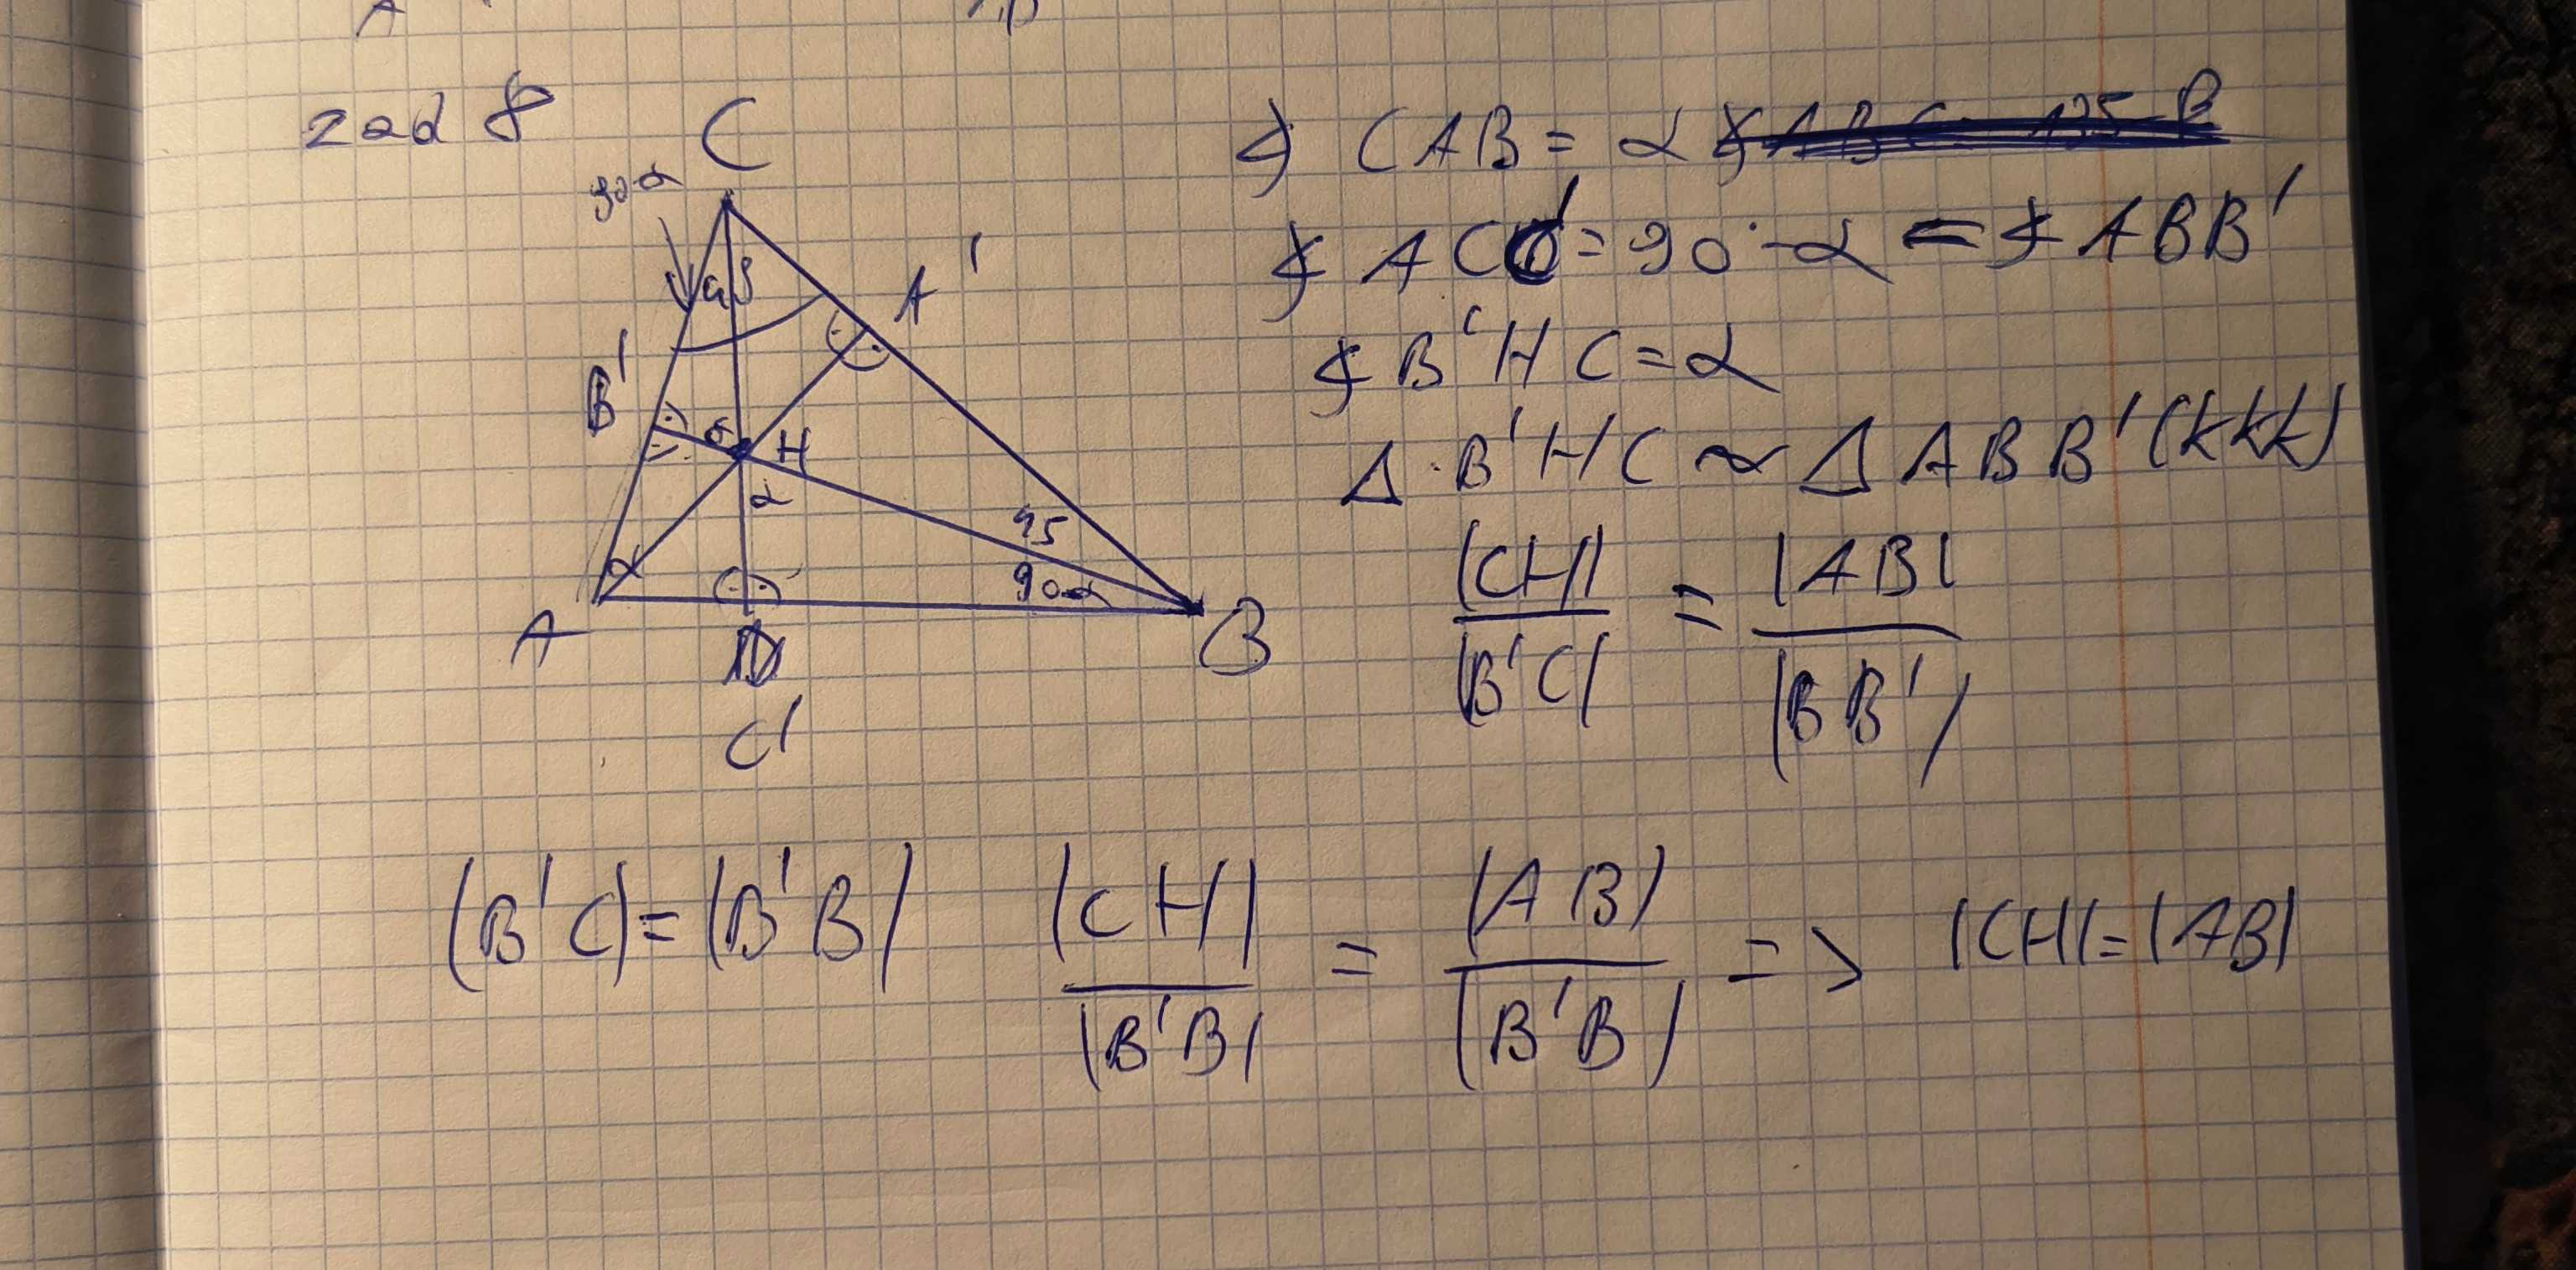 zad 8
C
90-α
45
A'
B'
α
H
α
45
90-α
α
A
B
C'
∢ CAB = α
∢ ACC' = 90° - α = ∢ ABB'
∢ B'HC = α
Δ B'HC ~ Δ ABB' (kkk)
|CH| / |B'C| = |AB| / |BB'|
|B'C| = |B'B| |CH| / |B'B| = |AB| / |B'B| => |CH| = |AB|